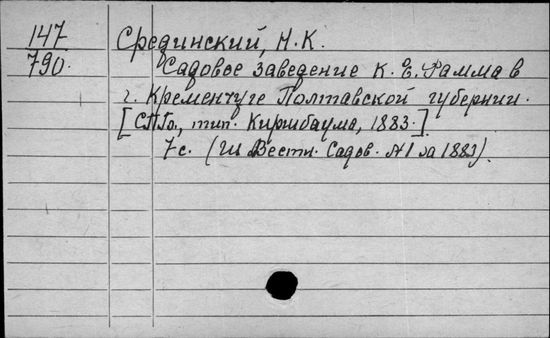 147
790
Срединский, Н.К.
Садовое заведение К. Е. Рамма в
г. Кременчуге Полтавской губернии.
[СПб., тип. Киршбаума, 1883.]
7 с. (Из Вестн. Садов. № 1 за 1883).